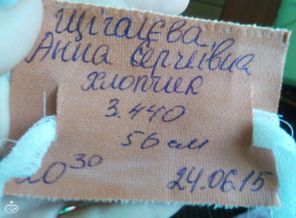 Щігалєва
Анна Сергіївна
хлопчик
3.440
56 см
20 30 24.06.15